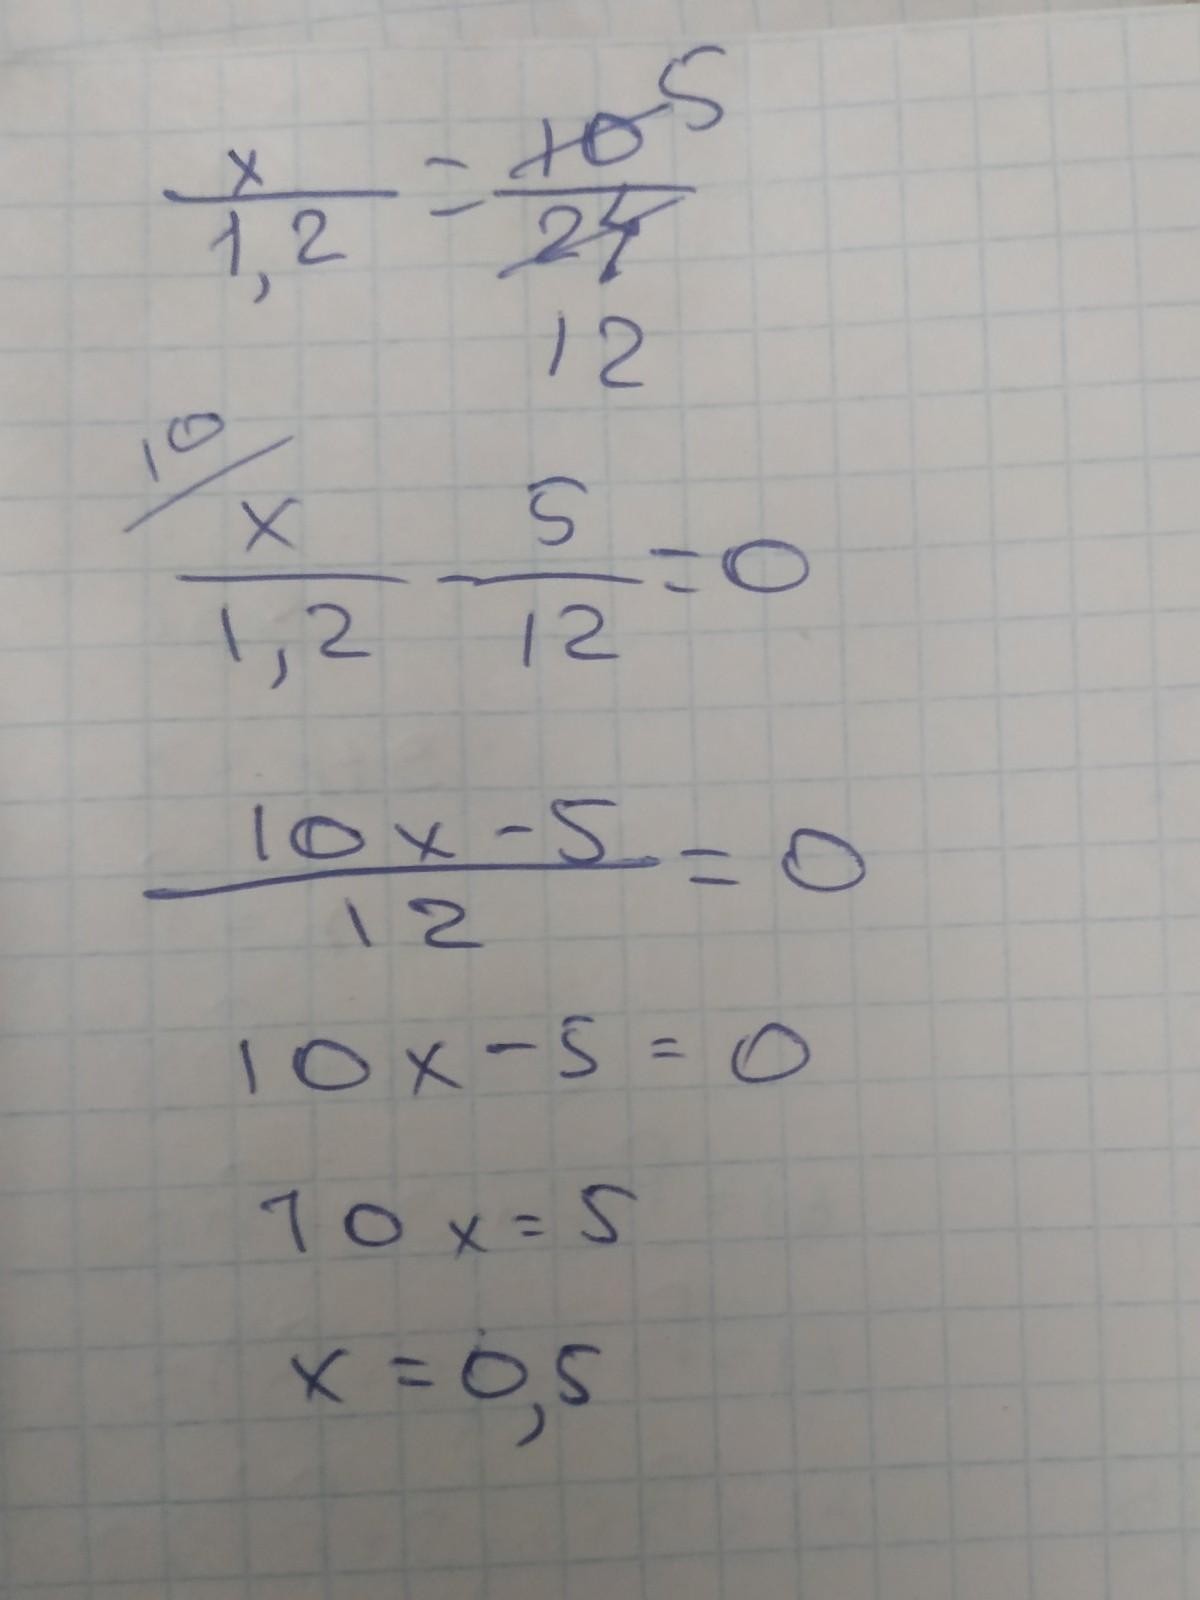 x/1,2 = 10/24 5
12
10/ x/1,2 - 5/12 = 0
10x-5/12 = 0
10x-5=0
10x=5
x=0,5